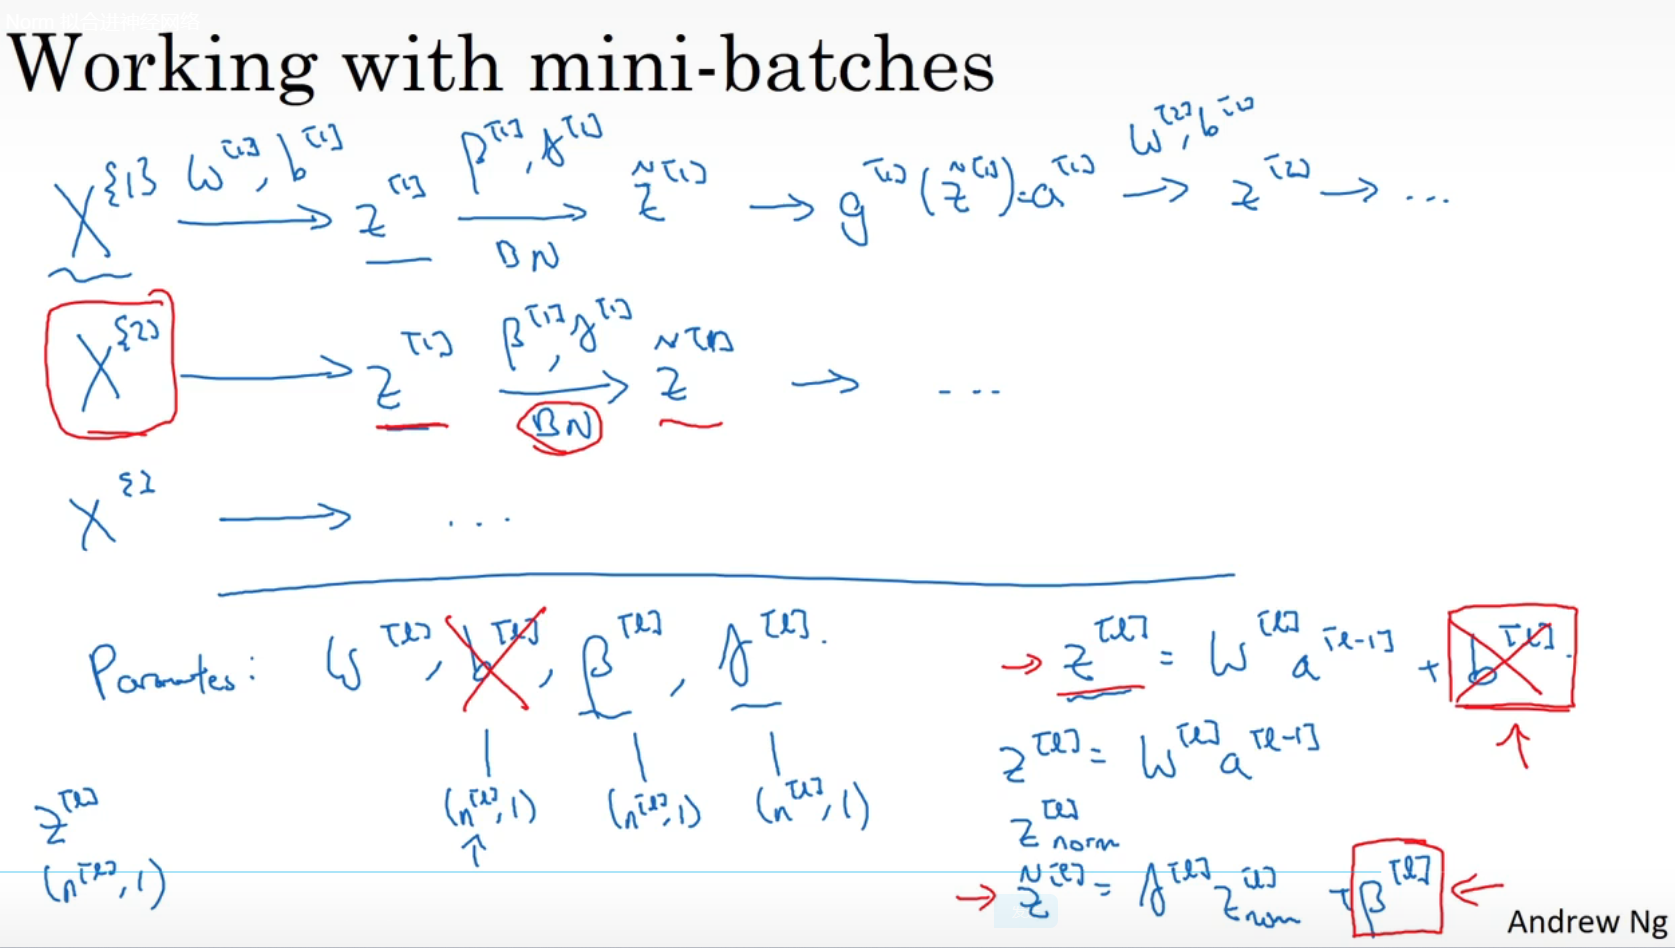 Norm 拟合进神经网络
Working with mini-batches
X^{1} —W^[1], b^[1]→ z^[1] —β^[1], γ^[1] BN→ z̃^[1] → g^[1](z̃^[1]) = a^[1] —W^[2], b^[2]→ z^[2] → ...
X^{2} → z^[1] —β^[1], γ^[1] BN→ z̃^[1] → ...
X^{} → ...
Parameters: W^[l], b^[l], β^[l], γ^[l].
(n^[l], 1) (n^[l], 1) (n^[l], 1)
z^[l]
(n^[l], 1)
→ z^[l] = W^[l] a^[l-1] + b^[l].
z^[l] = W^[l] a^[l-1]
z^[l]_norm
→ z̃^[l] = γ^[l] z^[l]_norm + β^[l] ←
Andrew Ng